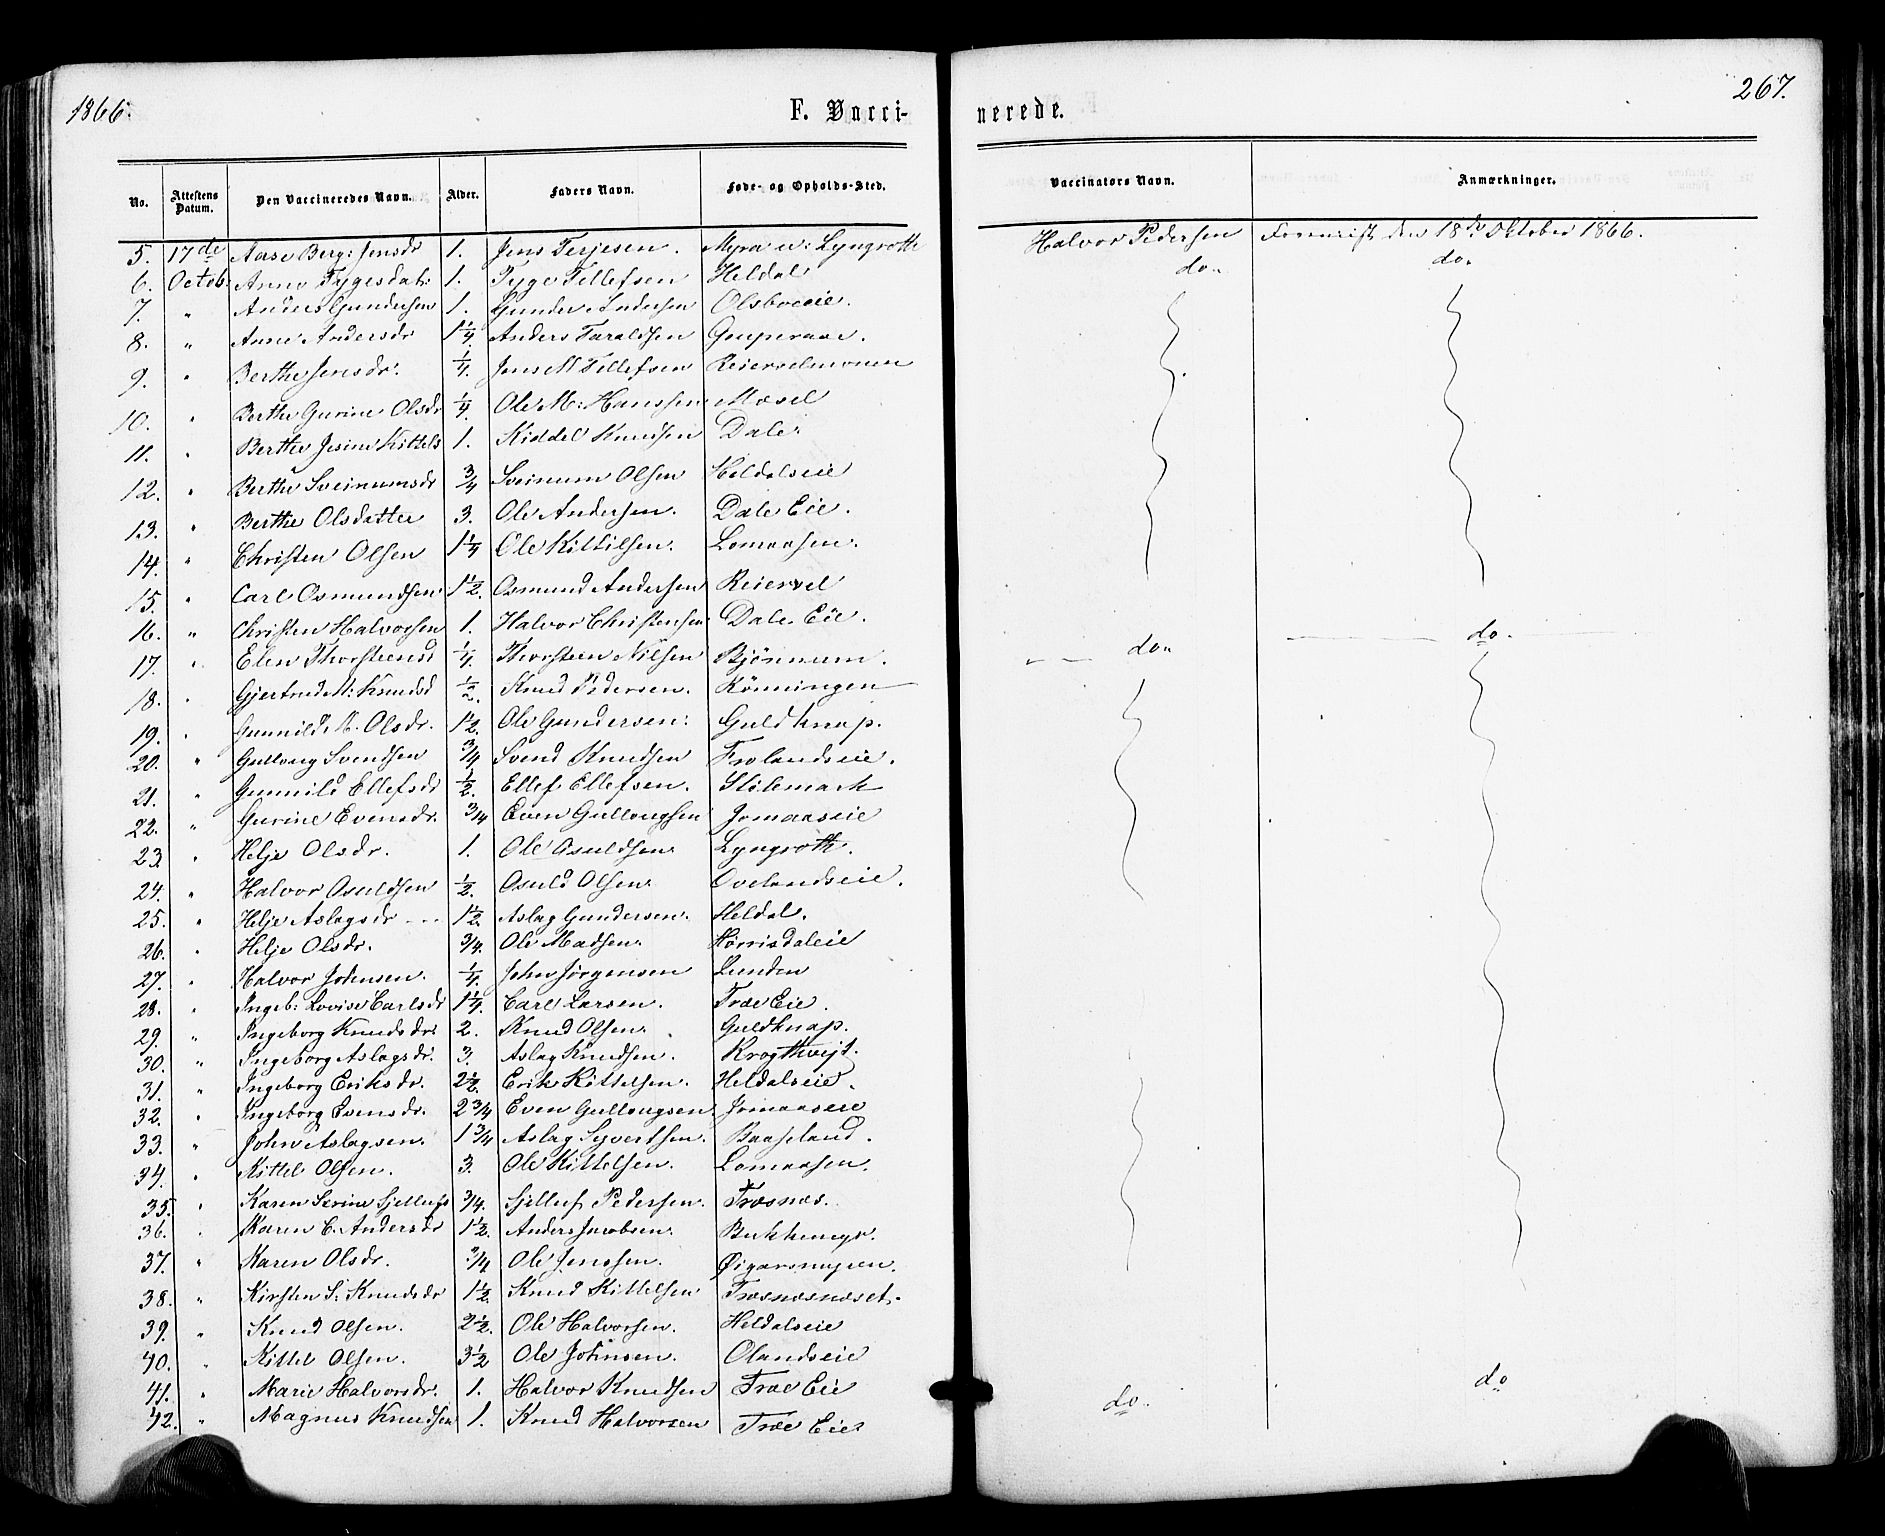 1866. F. Vacci- nerede. 267.
No. Attestens Datum. Den Vaccineredes Navn. Alder. Faders Navn. Føde- og Opholds-Sted. Vaccinators Navn. Anmærkninger.
5. 17de Aase Berg: Jensdr 1. Jens Terjesen. Myra u: Lyngroth Halvor Pedersen Foreviist den 18de Oktober 1866.
6. Octob. Anne Tygesdat: 1. Tyge Tellefsen Heldal do. do.
7. " Anders Gundersen 1. Gunder Andersen Olsboeeie.
8. " Anne Andersdr 1 1/4. Anders Taraldsen
9. " Berthe Jensdr. 1/4. Jens M Tellefsen Reierselmoen
10. " Berthe Gurine Olsdr 1/4. Ole M: Hanssen Mosel
11. " Berthe Jesine Kittels 1. Kiddel Knudsen Dale
12. " Berthe Sveinumsdr 3/4 Sveinum Olsen Heldalseie
13. " Berthe Olsdatter 3. Ole Andersen. Dale Eie.
14. " Christen Olsen 1 1/4 Ole Kittilsen. Lomaasen.
15. " Carl Osmundsen 1 1/2. Osmund Andersen Reiersel
16. " Christen Halvorsen 1. Halvor Christensen Dale Eie.
17. " Elen Thorsteensd 1/4. Thorsteen Nilsen Bjønnum. do. do.
18. " Gjertrud M: Knudsd 1/2. Knud Pedersen. Rønningen
19. " Gunnild K. Olsdr. 1 1/2. Ole Gundersen. Guldknap.
20. " Gullong Svendsen 3/4 Svend Knudsen Frolandseie.
21. " Gunnild Ellefsdr 1/2. Ellef Ellefsen. Stølemark
22. " Gurine Evensdr. 3/4 Even Gullongsen Jomaaseie
23. " Helje Olsdr. 1. Ole Osuldsen Lyngroth.
24. " Halvor Osuldsen 1/2. Osuld Olsen. Ovelandseie.
25. " Helje Aslagsdr 1 1/2. Aslag Gundersen. Heldal.
26. " Helje Olsdr. 3/4. Ole Madsen. Hørrisdaleie
27. " Halvor Johnsen. 1/4. John Jørgensen Lunden
28. " Ingeb: Lovise Carlsdr 1 1/4. Carl Larsen. Træ Eie.
29. " Ingeborg Knudsdr 2. Knud Olsen. Guldknap.
30. " Ingeborg Aslagsdr. 3. Aslag Knudsen. Krogthvejt.
31. " Ingeborg Eriksdr. 2 1/2. Erik Kittelsen. Heldalseie.
32. " Ingeborg Evensdr. 2 3/4 Even Gullongsen Jomaaseie
33. " John Aslagsen. 1 3/4 Aslag Syvertsen. Baaseland.
34. " Kittel Olsen. 3. Ole Kittelsen. Lomaasen.
35. " Karen Serine Sjellufs 3/4. Sjelluf Pedersen. Træsnæs.
36. " Karen C. Andersdr 1 1/2. Anders Jacobsen.
37. " Karen Olsdr. 3/4 Ole Jenssen.
38. " Kirsten S: Knudsdr 1 1/2. Knud Kittelsen Træsnæsnæset.
39. " Knud Olsen. 2 1/2. Ole Halvorsen. Heldalseie
40. " Kittel Olsen. 3 1/2 Ole Johnsen. Olandseie
41. " Marie Halvorsdr. 1. Halvor Knudsen Træ Eie do
42. " Magnus Knudsen 1. Knud Halvorsen Træ Eie do.